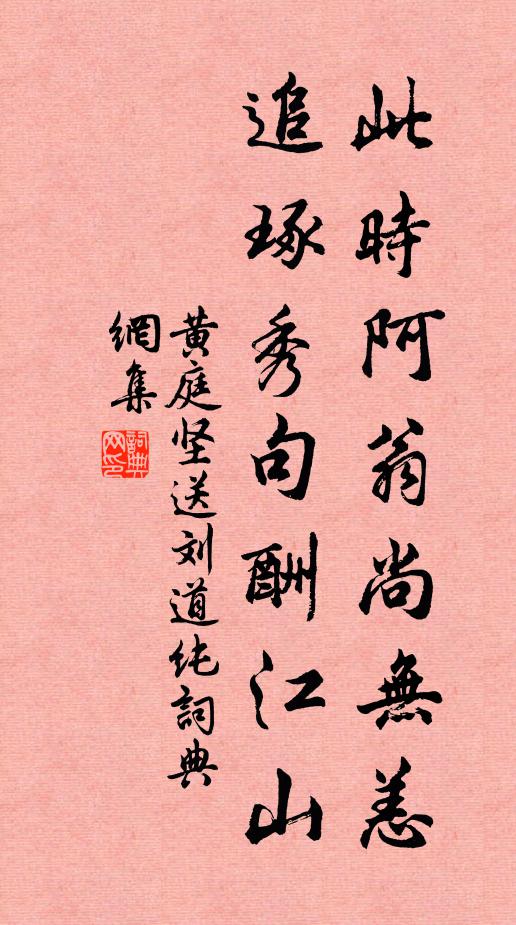 此時阿翁尚無恙
追琢秀句酬江山
黄庭坚送刘道纯詞典
網集
詞典網印